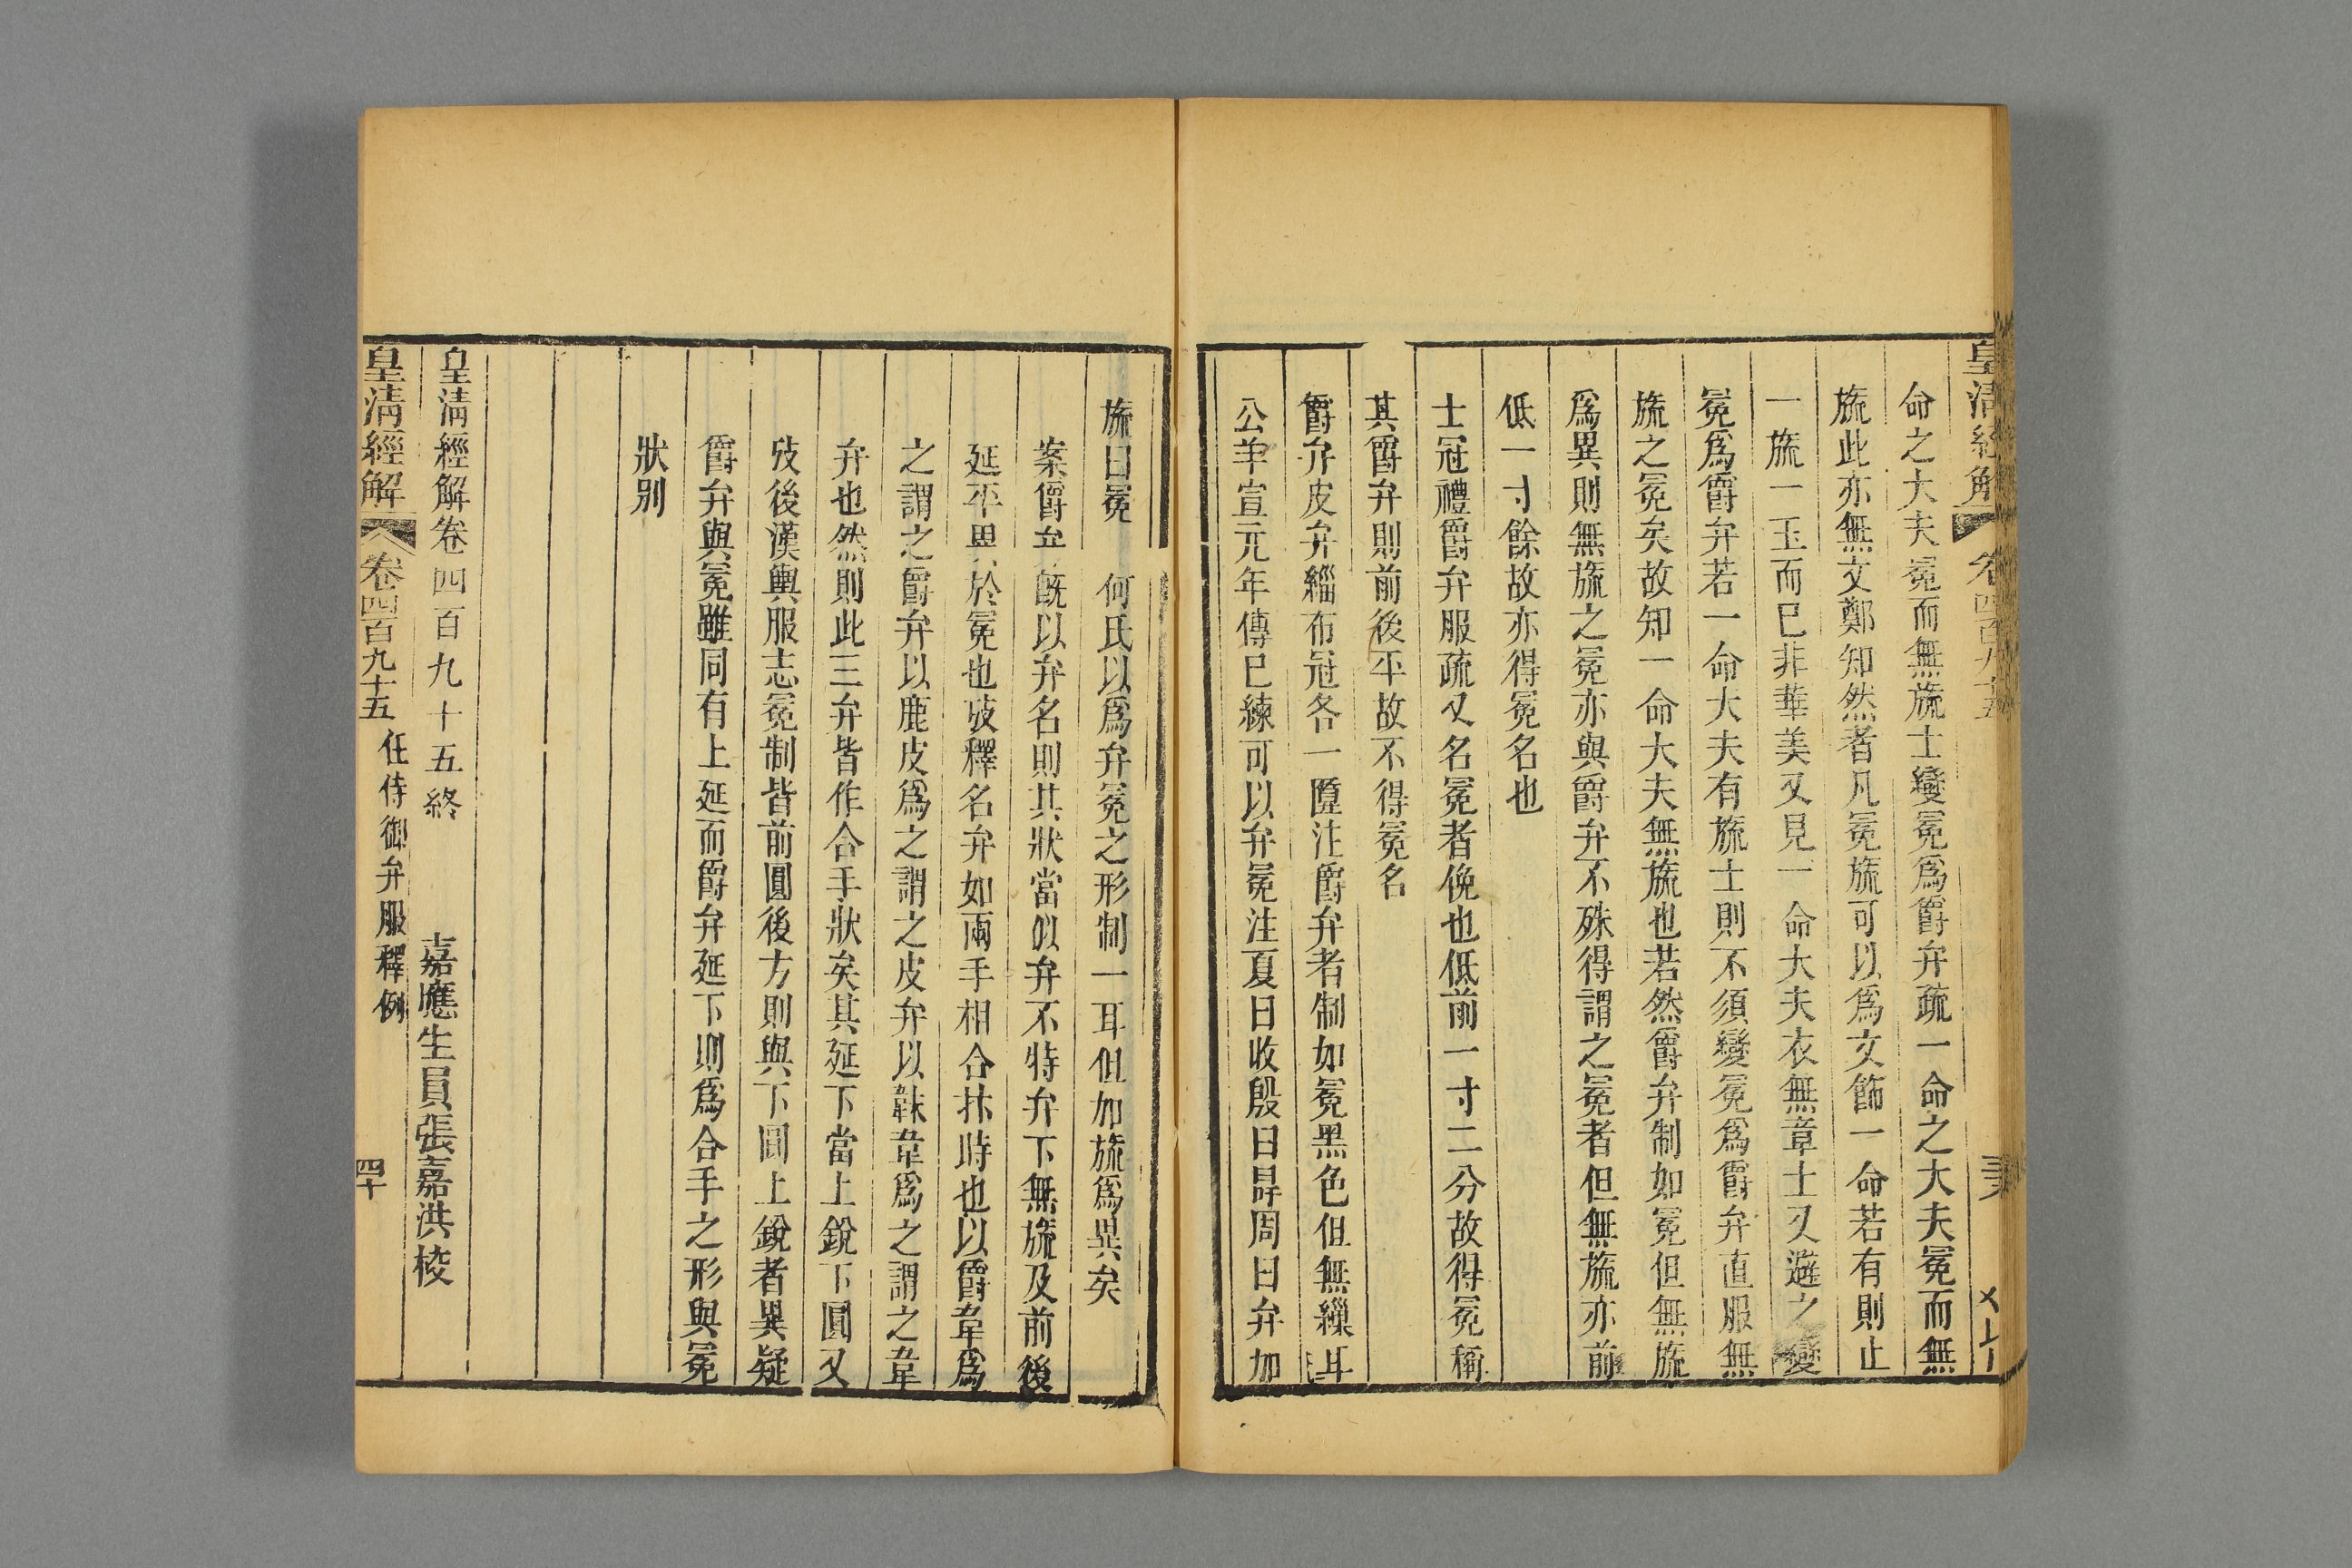 皇清經解 卷四百九十五
命之大夫冕而無旒士變冕爲爵弁疏一命之大夫冕而無
旒此亦無文鄭知然者凡冕旒可以爲文飾一命若有則止
一旒一玉而已非華美又見一命大夫衣無章士又避之變
冕爲爵弁若一命大夫有旒士則不須變冕爲爵弁直服無
旒之冕矣故知一命大夫無旒也若然爵弁制如冕但無旒
爲異則無旒之冕亦與爵弁不殊得謂之冕者但無旒亦前
低一寸餘故亦得冕名也
士冠禮爵弁服疏又名冕者俛也低前一寸二分故得冕稱
其爵弁則前後平故不得冕名
爵弁皮弁緇布冠各一匴注爵弁者制如冕黑色但無繅耳
公羊宣元年傳已練可以弁冕注夏曰收殷曰冔周曰弁加
旒曰冕 何氏以爲弁冕之形制一耳但加旒爲異矣
案爵弁既以弁名則其狀當似弁不特弁下無旒及前後
延平異於冕也攷釋名弁如兩手相合抃時也以爵韋爲
之謂之爵弁以鹿皮爲之謂之皮弁以韎韋爲之謂之韋
弁也然則此三弁皆作合手狀矣其延下當上銳下圓又
攷後漢輿服志冕制皆前圓後方則與下圓上銳者異疑
爵弁與冕雖同有上延而爵弁延下則爲合手之形與冕
狀別
皇清經解卷四百九十五終 嘉應生員張嘉洪校
皇清經解 卷四百九十五 任侍御弁服釋例 四十